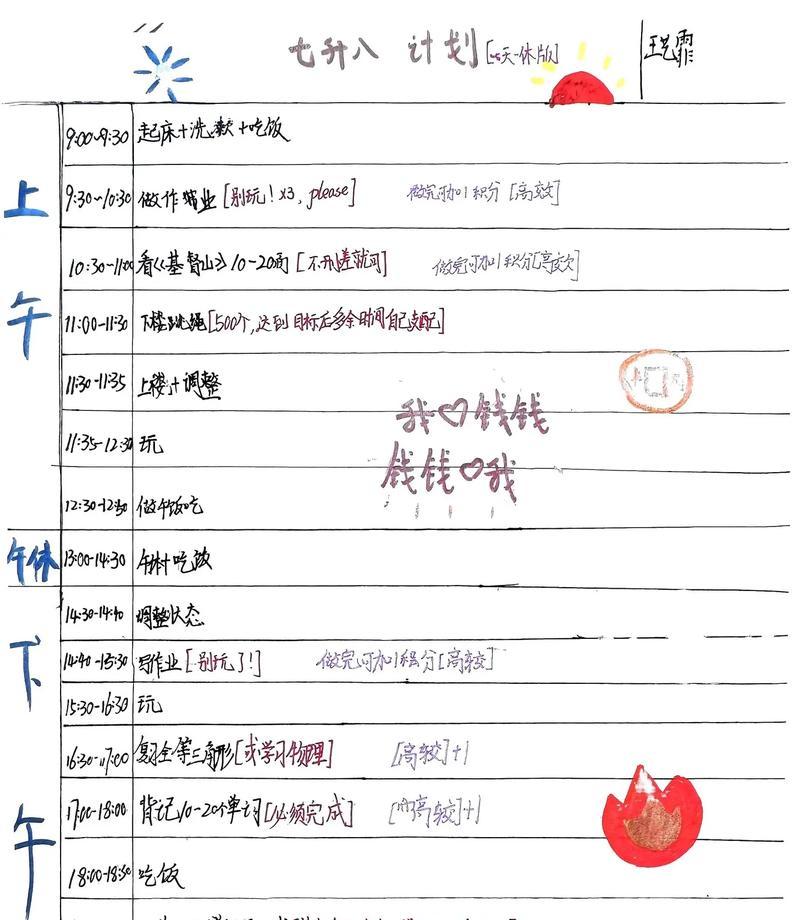 七升八 计划[七天一休版]
王艺霏
上午
9:00~9:30 起床+洗漱+吃饭
9:30~10:30 做作业[别玩!x3, please] 做完可加1积分[高效]
10:30-11:00 看《基督山》10-20面[不刑差就可] 做完可加1积分[高效]
11:00-11:30 下楼跳绳[500个,达到目标后多余时间自己支配]
11:30-11:35 上楼+调整
我♡钱钱
11:35-12:30 玩
钱钱♡我
12:30-12:50 做午饭吃
午休
13:00-14:30 午休+吃放
下午
14:30-14:40 调整状态
14:40-15:30 写作业[别玩了!] 做完可加1积分[高较]
15:30-16:30 玩
16:30-17:00 复习全等三角形[或学习物理] [高较]+1
17:00-18:00 背记10-20个单词[必须完成] [高较]+1
18:00-18:30 吃饭